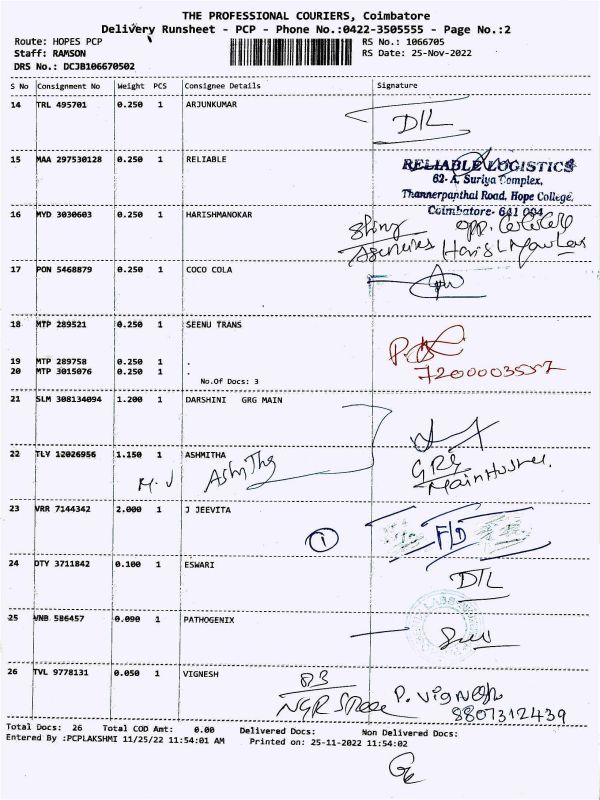 THE PROFESSIONAL COURIERS, Coimbatore
Delivery Runsheet - PCP - Phone No.:0422-3505555 - Page No.:2
Route: HOPES PCP RS No.: 1066705
Staff: RAMSON RS Date: 25-Nov-2022
DRS No.: DCJB106670502
S No Consignment No Weight PCS Consignee Details Signature
14 TRL 495701 0.250 1 ARJUNKUMAR
D/L
15 MAA 297530128 0.250 1 RELIABLE
RELIABLE LOGISTICS
62- A, Suriya Complex,
Thannerpanthal Road, Hope College,
Coimbatore- 641 004
16 MYD 3030603 0.250 1 HARISHMANOKAR
17 PON 5468879 0.250 1 COCO COLA
18 MTP 289521 0.250 1 SEENU TRANS
19 MTP 289758 0.250 1 .
20 MTP 3015076 0.250 1 .
No.Of Docs: 3
21 SLM 308134094 1.200 1 DARSHINI GRG MAIN
22 TLY 12026956 1.150 1 ASHMITHA
M.J Ashitha
GRG
Main Hostel.
23 VRR 7144342 2.000 1 J JEEVITA
1 F/D
24 DTY 3711842 0.100 1 ESWARI
D/L
25 VNB 586457 0.090 1 PATHOGENIX
26 TVL 9778131 0.050 1 VIGNESH
83
NGR Street P. Vignesh
8807312439
Total Docs: 26 Total COD Amt: 0.00 Delivered Docs: Non Delivered Docs:
Entered By :PCPLAKSHMI 11/25/22 11:54:01 AM Printed on: 25-11-2022 11:54:02